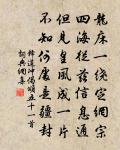 龍床一繞定綱宗
四海從茲信息通
但見皇風成一片
不知何處是疆封
釋道沖偈頌五十一首
詞典網集